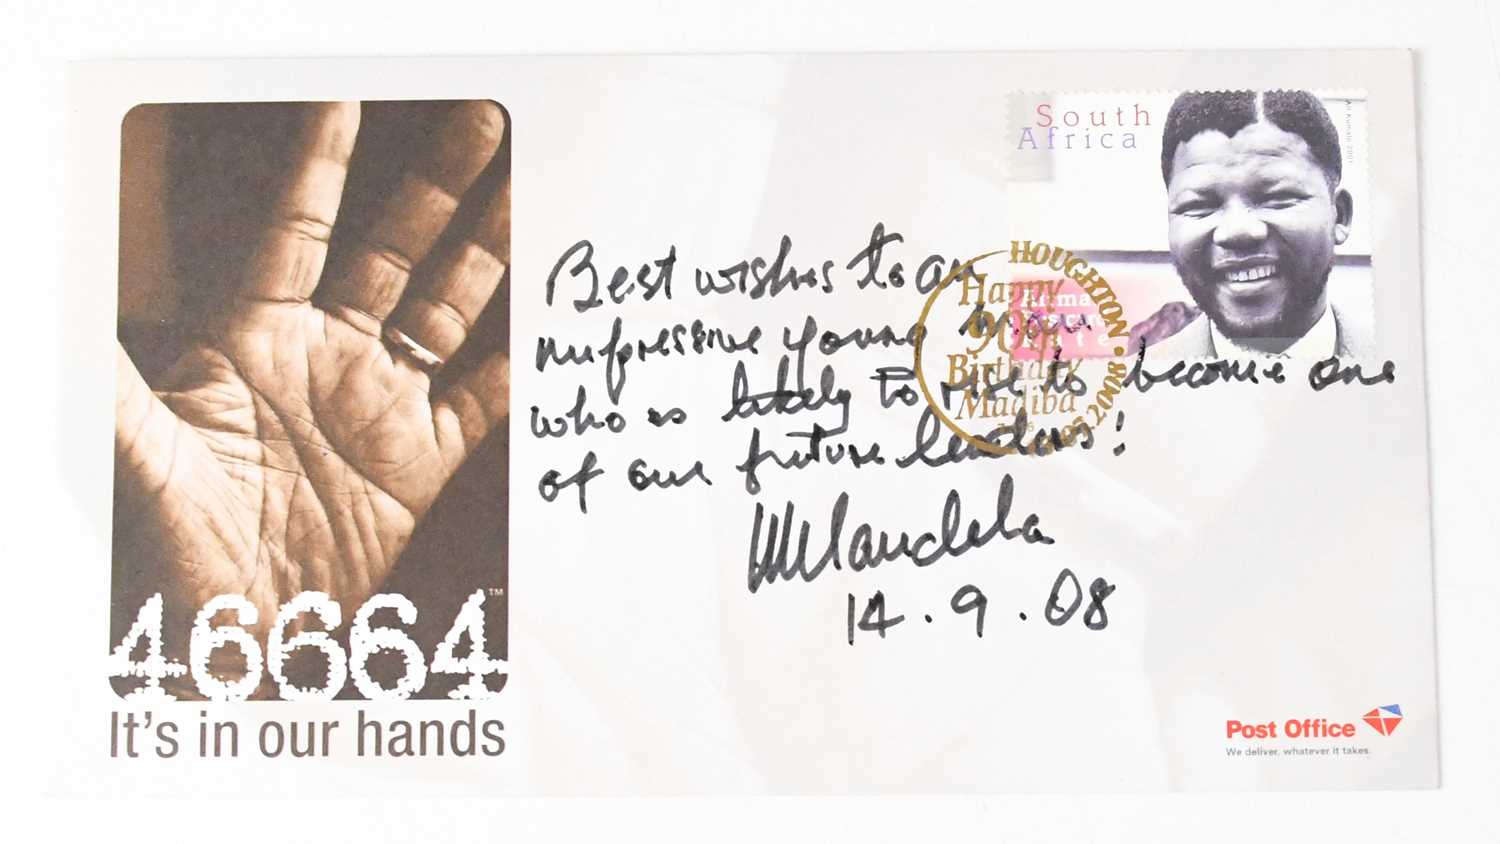 South
Africa
Best wishes to an
impressive young man
who is likely to rise to become one
of our future leaders!
NMandela
14.9.08
HOUGHTON
Happy
90th
Birthday
Madiba
Airmail
Postcard
Rate
46664™
It's in our hands
Post Office
We deliver, whatever it takes.